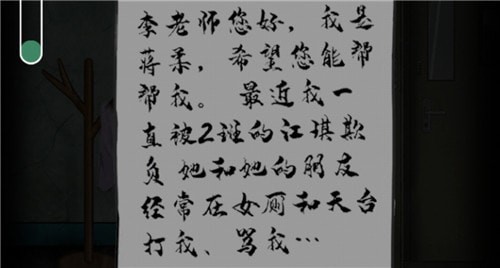 李老师您好，我是
蒋柔，希望您能帮
帮我。 最近我一
直被2班的江琪欺
负 她和她的朋友
经常在女厕和天台
打我、骂我…